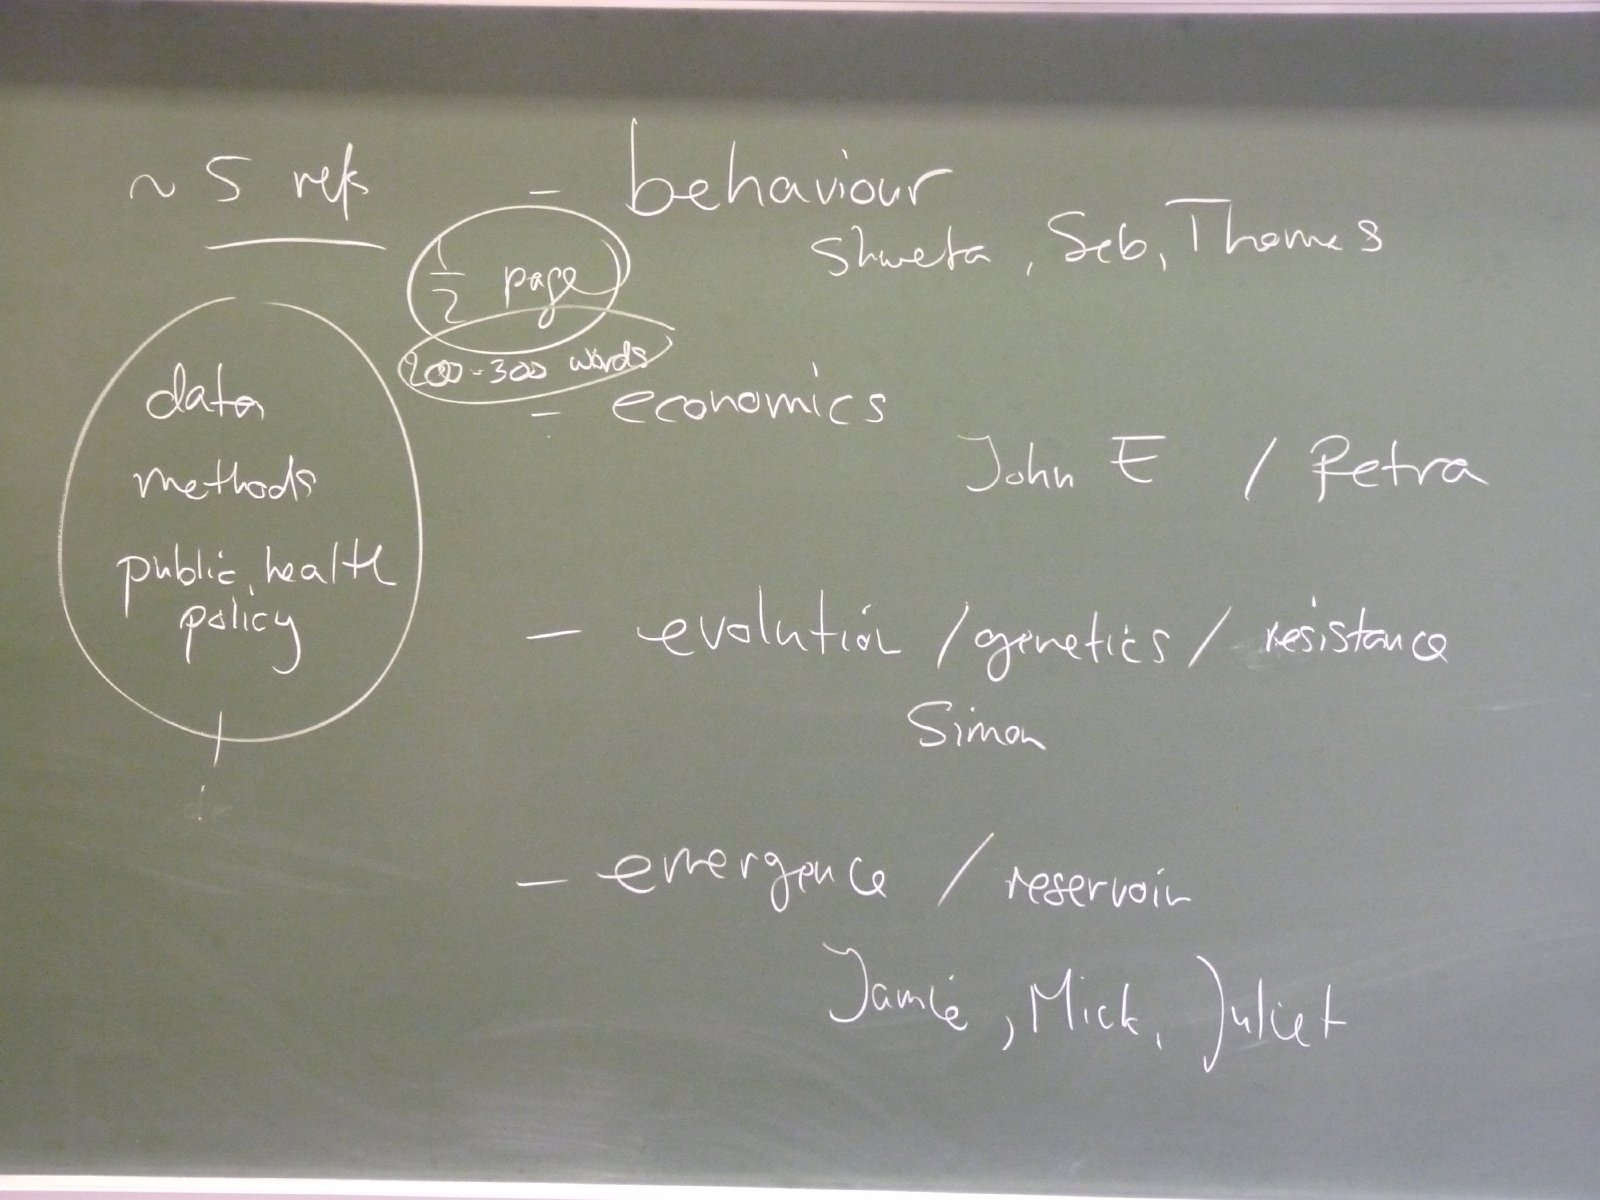 ~ 5 refs
- behaviour
Shweta, Seb, Thomas
1/2 page
200-300 words
data
methods
public health
policy
- economics
John E / Petra
- evolution / genetics / resistance
Simon
- emergence / reservoir
Jamie, Mick, Juliet